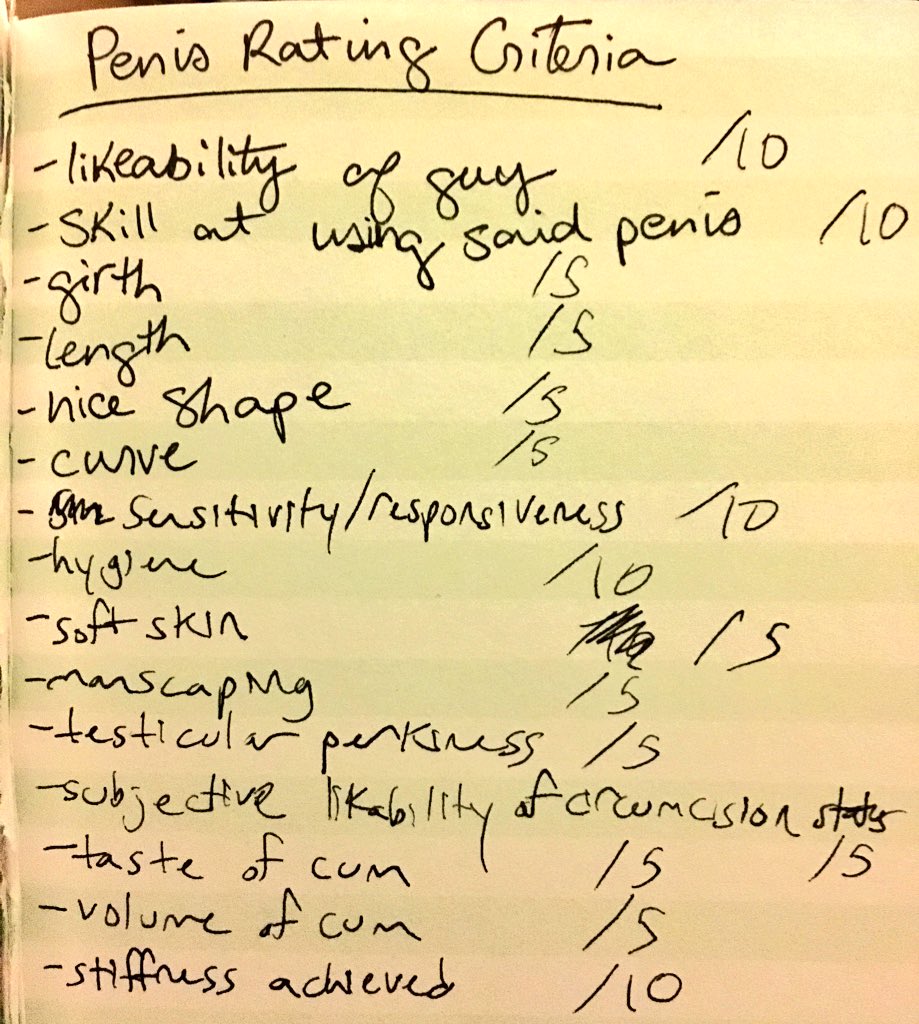 Penis Rating Criteria
-likeability of guy /10
-Skill at using said penis /10
-girth /5
-length /5
-nice shape /5
-curve /5
-sensitivity/responsiveness /10
-hygiene /10
-soft skin /5
-manscaping /5
-testicular perkiness /5
-subjective likability of circumcision status /5
-taste of cum /5
-volume of cum /5
-stiffness achieved /10